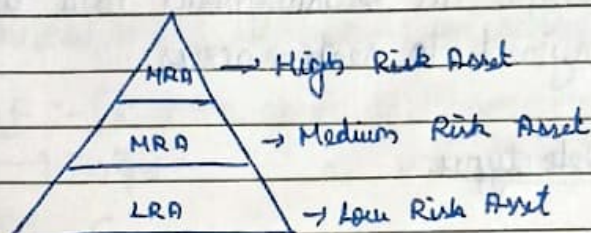 HRA → High Risk Asset
MRA → Medium Risk Asset
LRA → Low Risk Asset